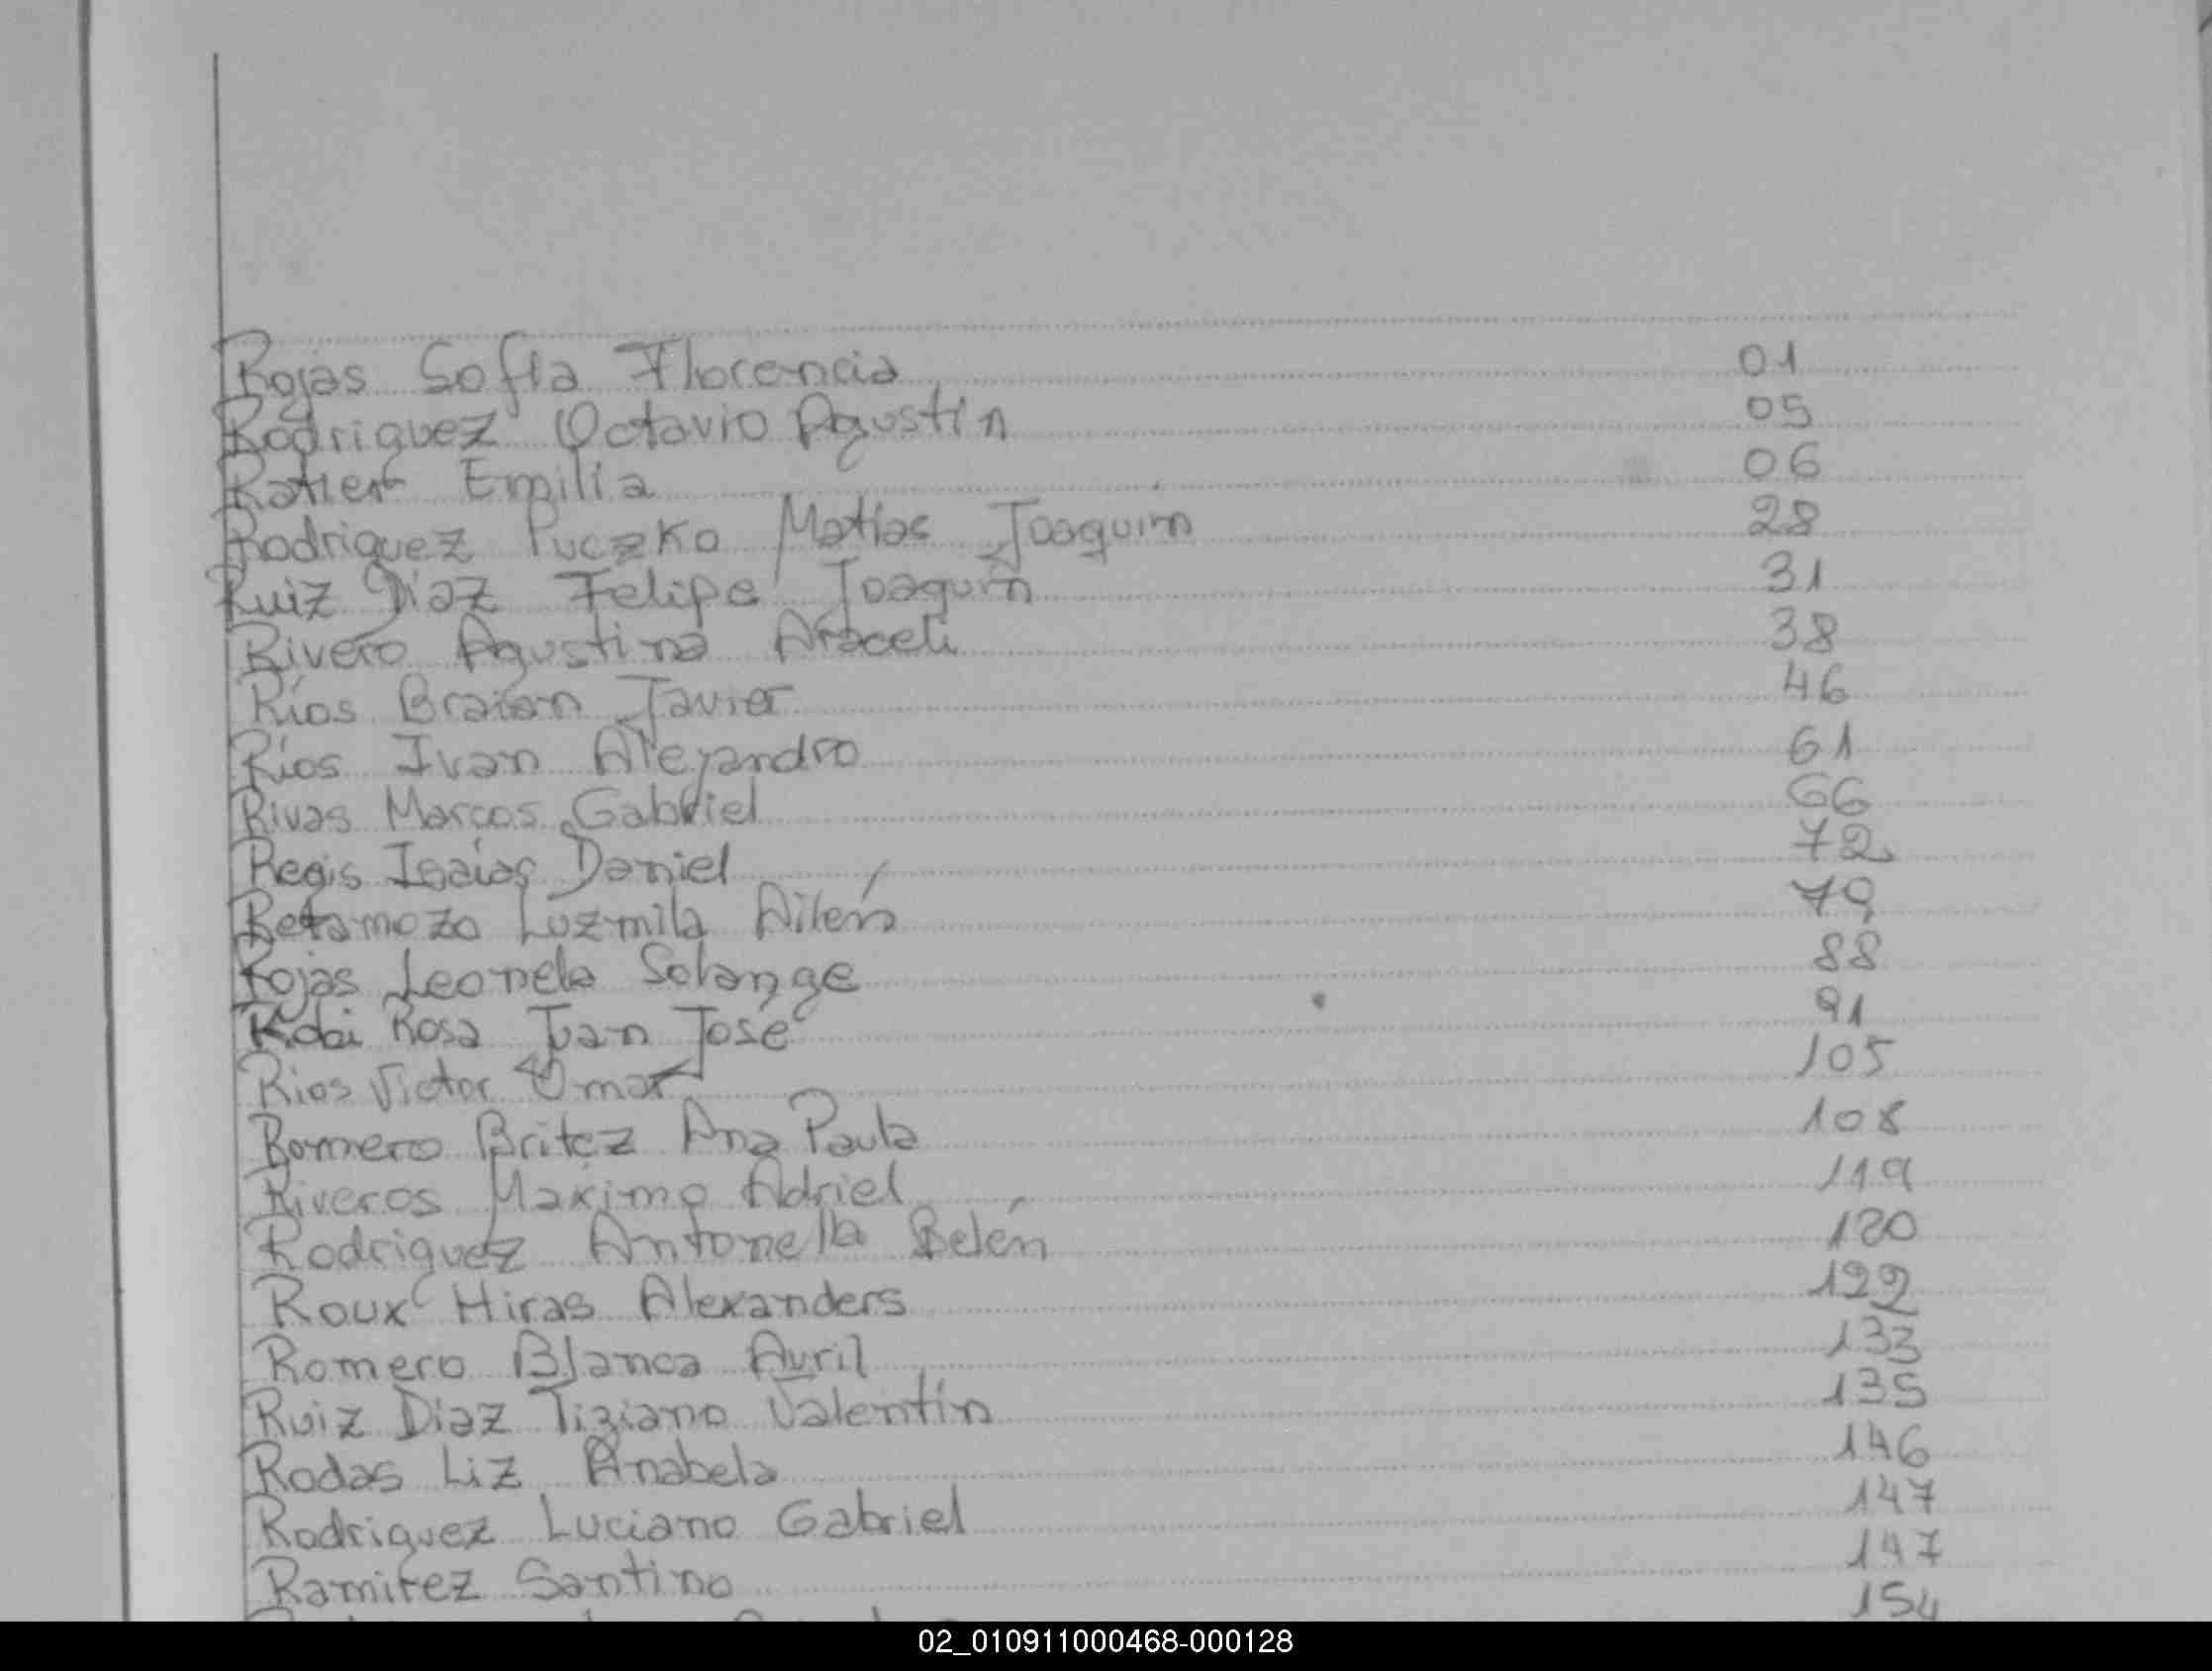 Rojas Sofía Florencia 01
Rodriguez Octavio Agustín 05
Ratier Emilia 06
Rodriguez Puczko Matías Joaquin 28
Ruiz Díaz Felipe Joaquin 31
Rivero Agustina Araceli 38
Ríos Braian Javier 46
Ríos Ivan Alejandro 61
Rivas Marcos Gabriel 66
Regis Isaías Daniel 72
Retamozo Luzmila Ailén 79
Rojas Leonela Solange 88
Rosa Juan José 91
Rios Victor Omar 105
Romero Britez Ana Paula 108
Riveros Maximo Adriel 119
Rodriguez Antonella Belén 120
Roux Hiras Alexanders 122
Romero Blanca Avril 133
Ruiz Diaz Tiziano Valentín 135
Rodas Liz Anabela 146
Rodriguez Luciano Gabriel 147
Ramirez Santino 147
154
02_010911000468-000128